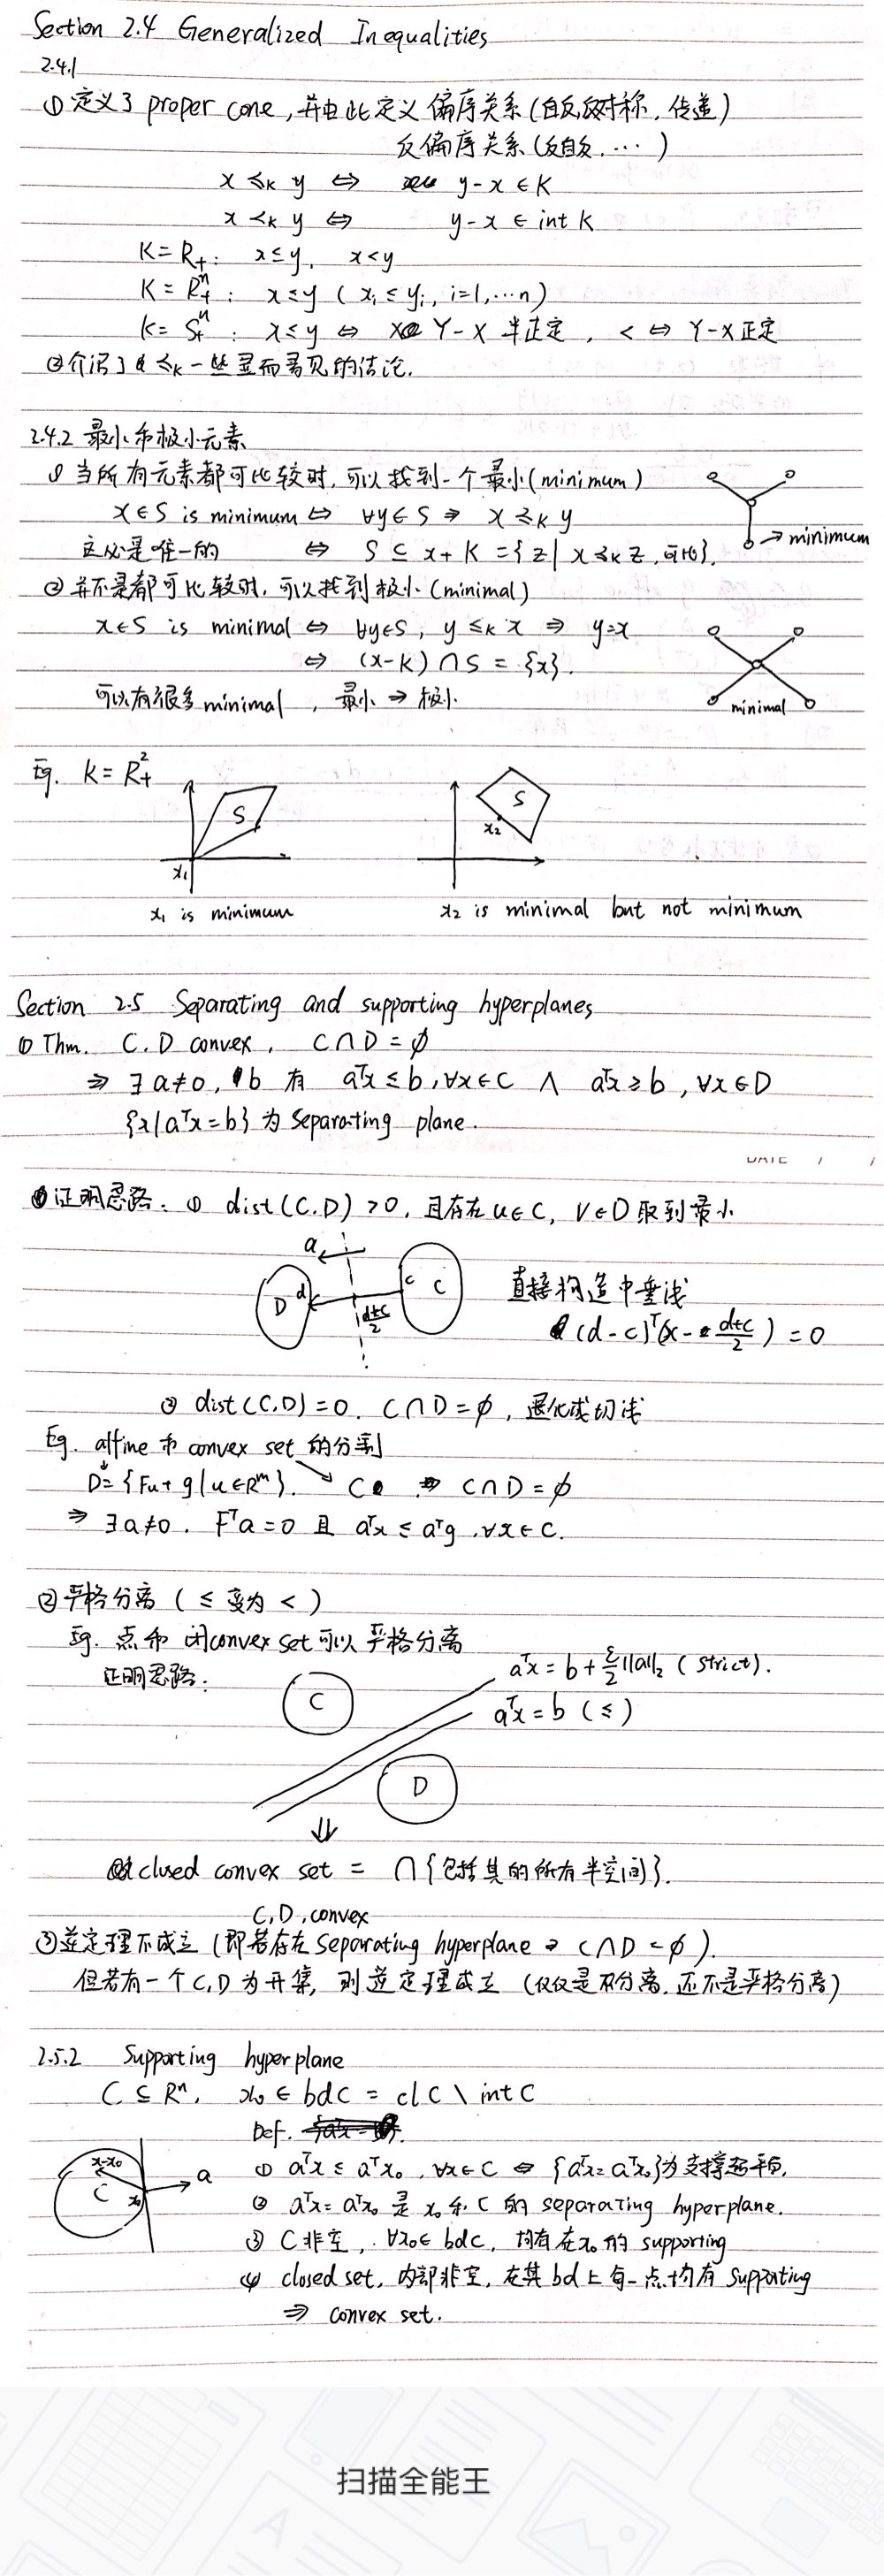 Section 2.4 Generalized Inequalities
2.4.1
① 定义了 proper cone, 并由此定义 偏序关系 (自反反对称, 传递)
反偏序关系 (反自反, ⋯ )
x ≤ₖ y ⇔ y-x ∈ K
x <ₖ y ⇔ y-x ∈ int K
K = R₊ : x ≤ y, x < y
K = R₊ⁿ : x ≤ y ( xᵢ ≤ yᵢ, i=1,⋯n)
K = S₊ⁿ : x ≤ y ⇔ Y-X 半正定, < ⇔ Y-X 正定
② 介绍了 ≤ₖ 一些显而易见的结论.
2.4.2 最小和极小元素
① 当所有元素都可比较时, 可以找到一个最小(minimum)
x ∈ S is minimum ⇔ ∀y∈S ⇒ x ≤ₖ y
→ minimum
这必是唯一的 ⇔ S ⊆ x+K = {z| x ≤ₖ z, 可比}.
② 并不是都可比较时, 可以找到极小(minimal)
x∈S is minimal ⇔ ∀y∈S, y ≤ₖ x ⇒ y=x
⇔ (x-K) ∩ S = {x}.
可以有很多 minimal, 最小 ⇒ 极小
minimal
Eg. K = R₊²
S
S
x₂
x₁
x₁ is minimum
x₂ is minimal but not minimum
Section 2.5 Separating and supporting hyperplanes
① Thm. C.D convex, C∩D = ∅
⇒ ∃ a≠0, b 有 aᵀx ≤ b, ∀x∈C ∧ aᵀx ≥ b, ∀x∈D
{x|aᵀx=b} 为 separating plane.
DATE / /
证明思路: ① dist(C.D) > 0, 且存在 u∈C, V∈D 取到最小
a
D d c C
d+c/2
直接构造中垂线
(d-c)ᵀ(x - d+c/2) = 0
② dist(C,D)=0. C∩D=∅, 退化成切线
Eg. affine 和 convex set 的分割
D={Fu+g|u∈Rᵐ}. C ⇒ C∩D=∅
⇒ ∃a≠0. Fᵀa=0 且 aᵀx ≤ aᵀg, ∀x∈C.
② 严格分离 ( ≤ 变为 < )
Eg. 点和闭convex set 可以严格分离
证明思路:
aᵀx = b + ε/2||a||₂ ( strict).
C
aᵀx = b (≤)
D
⇓
closed convex set = ∩{包括其的所有半空间}.
C,D,convex
③ 逆定理不成立 (即若存在 separating hyperplane ⇒ C∩D=∅).
但若有一个 C,D 为开集, 则逆定理成立 (仅仅是分离, 还不是严格分离)
2.5.2 Supporting hyperplane
C ⊆ Rⁿ, x₀ ∈ bd C = cl C \ int C
Def.
x-x₀
C
x₀
a
① aᵀx ≤ aᵀx₀, ∀x∈C ⇔ {aᵀx=aᵀx₀}为支撑超平面.
② aᵀx=aᵀx₀ 是 x₀ 和 C 的 separating hyperplane.
③ C非空, ∀x₀∈ bdC, 均有在x₀的 supporting
④ closed set, 内部非空, 在其 bd 上每一点均有 supporting
⇒ convex set.
扫描全能王